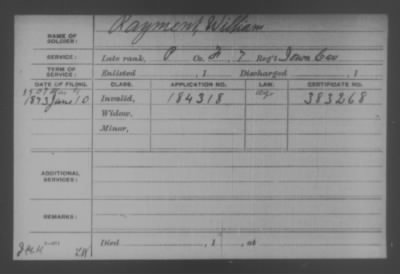 NAME OF SOLDIER: Raymont, William
SERVICE: Late rank, P Co. F, 7 Reg't Iowa Cav
TERM OF SERVICE: Enlisted , 1 Discharged , 1
DATE OF FILING. CLASS. APPLICATION NO. LAW. CERTIFICATE NO.
1873 Jan 10 Invalid, 184318 383268
Widow,
Minor,
ADDITIONAL SERVICES:
REMARKS:
Died , 1 , at